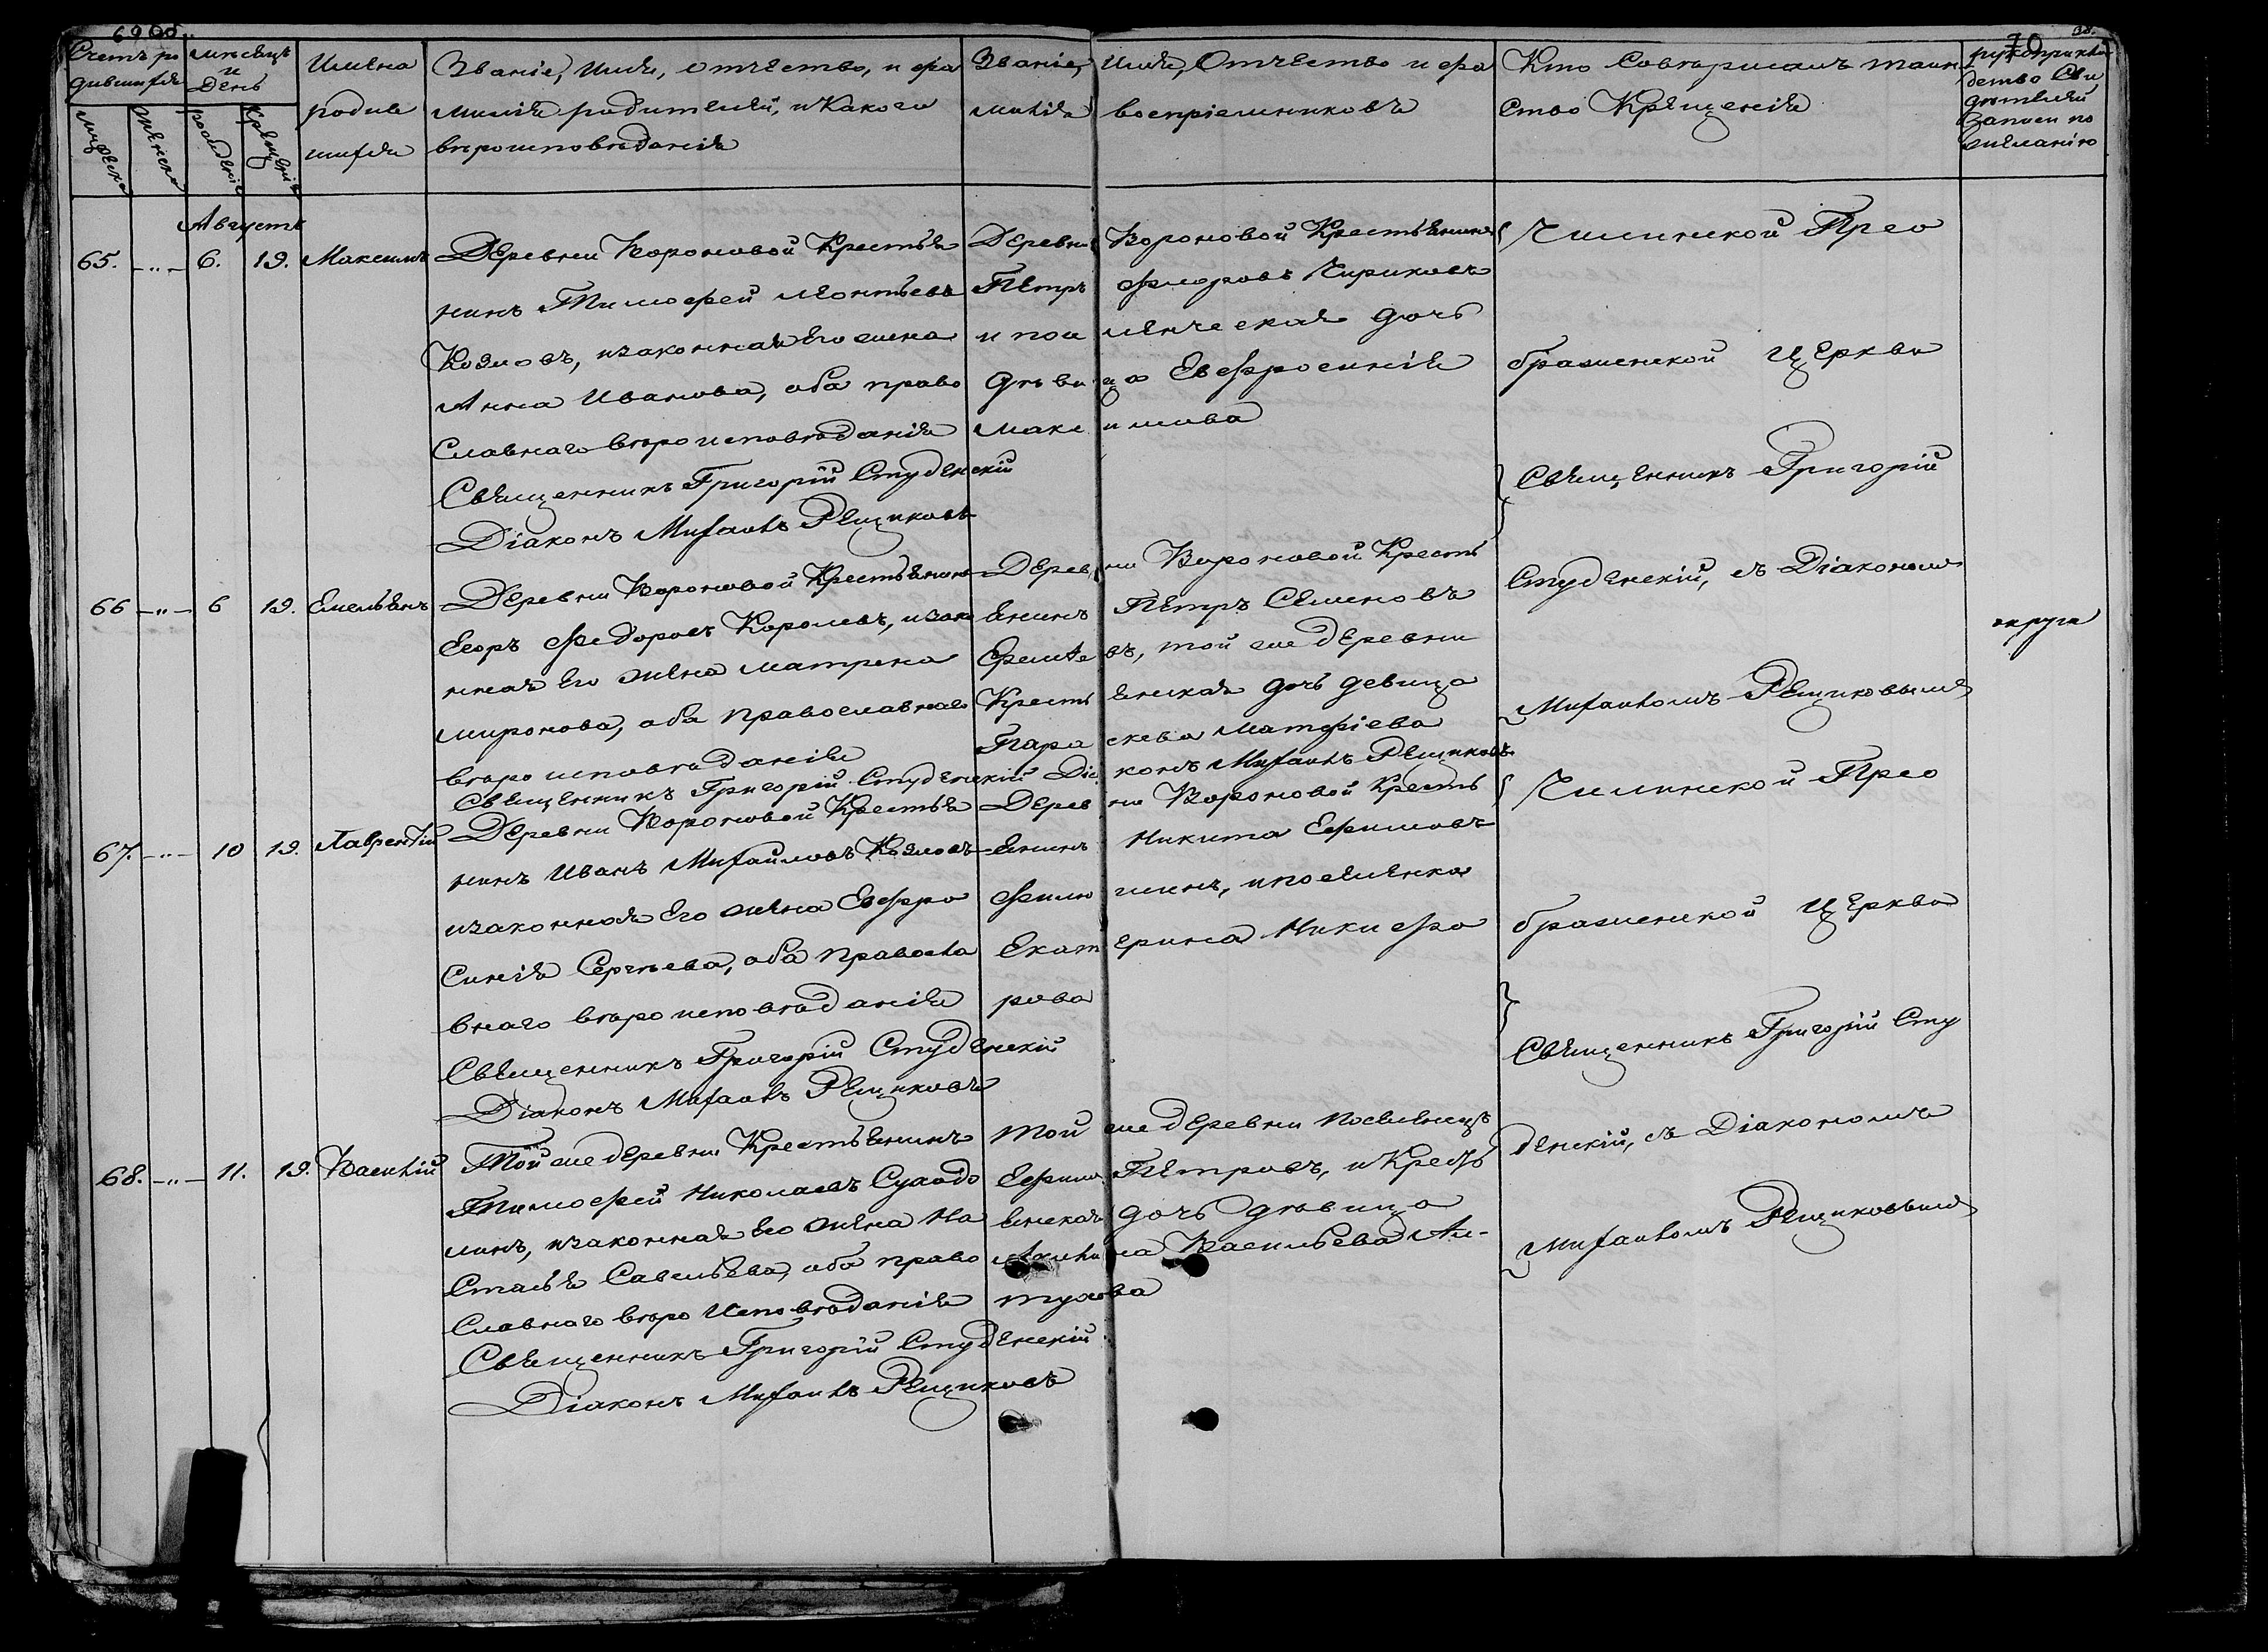 69 об.
38.
70
Счетъ ро
дившихся
мужеска
женска
мѣсяцъ
и
День
рожденіе
Крещеніе
Имена
родив
шихся
Званіе, Имя, отчество, и фа
милія родителей, и какого
вѣроисповѣданія
Званіе, Имя, Отчество и фа
милія воспріемниковъ
Кто Совершалъ таин
ство Крещенія
рукоприкла
дство Сви
дѣтелей
Записи по
желанію
Августъ
65. -"- 6. 19. Максимъ
Деревни Вороновой Крестья
нинъ Тимофей Леонтьевъ
Козловъ, изаконная Его жена
Анна Иванова, оба право
Славнаго вѣроисповѣданія
Священникъ Григорій Студенскій
Діаконъ Михаилъ Рещиковъ
Деревни Вороновой Крестьянинъ
Петръ Флоровъ Чириковъ
и посиленческая дочь
дѣвица Евфросинія
Максимова
Чилинской Прео
браженской Церкви
Священникъ Григорій
Студенскій, съ Діакономъ
Михаиломъ Рещиковымъ
66 -"- 6 19. Емельянъ
Деревни Вороновой Крестьянинъ
Егоръ Федоровъ Королевъ, изако
нная Его жена Матрена
миронова, оба православнаго
вѣро исповѣданія
Деревни Вороновой Кресть
янинъ Петръ Семеновъ
той же деревни
Крестьянская дочь девица
Параскева Матфіева
Священникъ Григорій Студенскій Діаконъ Михаилъ Рещиковъ
округи
67. -"- 10 19. Лаврентій
Деревни Вороновой Крестья
нинъ Иванъ Михайловъ Козловъ
изаконная Его жена Евфро
Синія Сергѣева, оба правосла
внаго вѣро исповѣданія
Священникъ Григорій Студенскій
Діаконъ Михаилъ Рещиковъ
Деревни Вороновой Кресть
янинъ Никита Ефимовъ
Филюшинъ, ипоселенка
Екатерина Никифо
рова
Чилинской Прео
браженской Церкви
Священникъ Григорій Сту
денскій, съ Діакономъ
Михаиломъ Рещиковымъ
68. -"- 11. 19. Василій
Той же деревни Крестьянинъ
Тимофей Николаевъ Суходо
линъ, изаконная Его жена На
Стасья Савельева, оба право
Славнаго вѣро Исповѣданія
Священникъ Григорій Студенскій
Діаконъ Михаилъ Рещиковъ
Той же деревни поселенецъ
Ефимъ Петровъ, и Кресть
янская дочь дѣвица
Акилина Васильева Ал-
тухова